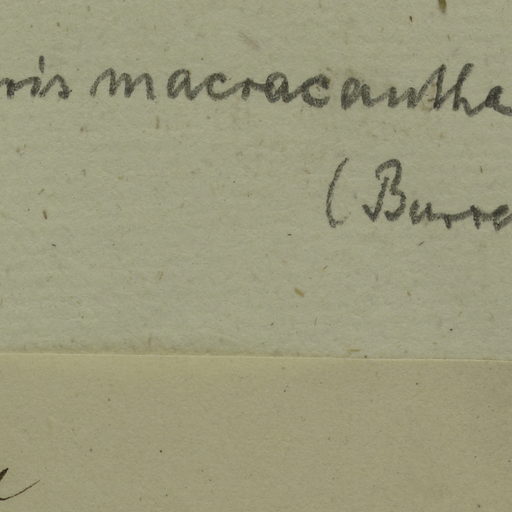 ris macracantha
(Burre